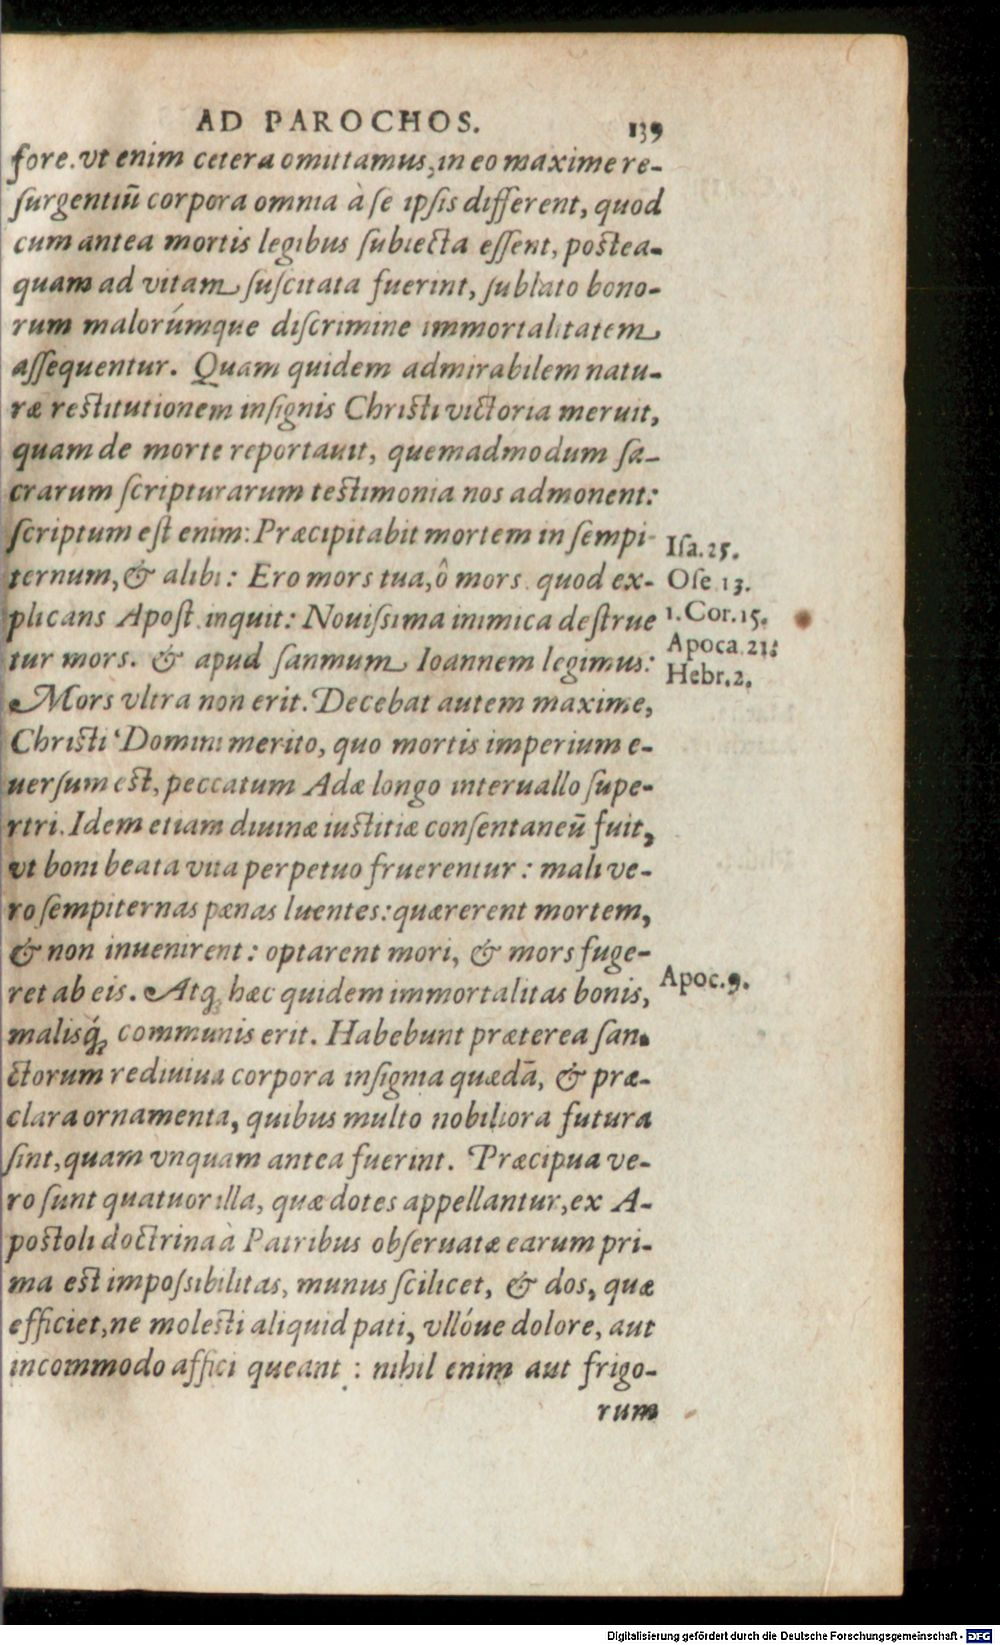 AD PAROCHOS. 139
fore. vt enim cetera omittamus, in eo maxime re-
ſurgentiū corpora omnia à ſe ipſis different, quod
cum antea mortis legibus ſubiecta eſſent, poſtea-
quam ad vitam ſuſcitata fuerint, ſublato bono-
rum malorúmque diſcrimine immortalitatem
aſſequentur. Quam quidem admirabilem natu-
ræ reſtitutionem inſignis Chriſti victoria meruit,
quam de morte reportauit, quemadmodum ſa-
crarum ſcripturarum teſtimonia nos admonent:
ſcriptum eſt enim: Præcipitabit mortem in ſempi-
ternum, & alibi: Ero mors tua, ô mors. quod ex-
plicans Apoſt. inquit: Nouiſsima inimica deſtrue
tur mors. & apud ſanmum Ioannem legimus:
Mors vltra non erit. Decebat autem maxime,
Chriſti Domini merito, quo mortis imperium e-
uerſum eſt, peccatum Adæ longo interuallo ſupe-
rtri. Idem etiam diuinæ iuſtitiæ conſentaneū fuit,
vt boni beata vita perpetuo fruerentur: mali ve-
ro ſempiternas pænas luentes: quærerent mortem,
& non inuenirent: optarent mori, & mors fuge-
ret ab eis. Atq; hæc quidem immortalitas bonis,
malisq́; communis erit. Habebunt præterea ſan-
ctorum rediuiua corpora inſignia quædā, & præ-
clara ornamenta, quibus multo nobiliora futura
ſint, quam vnquam antea fuerint. Præcipua ve-
ro ſunt quatuor illa, quæ dotes appellantur, ex A-
poſtoli doctrina à Patribus obſeruatæ earum pri-
ma eſt impoſsibilitas, munus ſcilicet, & dos, quæ
efficiet, ne moleſti aliquid pati, vllóue dolore, aut
incommodo affici queant: nihil enim aut frigo-
rum
Iſa. 25.
Oſe. 13.
1. Cor. 15.
Apoca. 21.
Hebr. 2.
Apoc. 9.
Digitalisierung gefördert durch die Deutsche Forschungsgemeinschaft - DFG